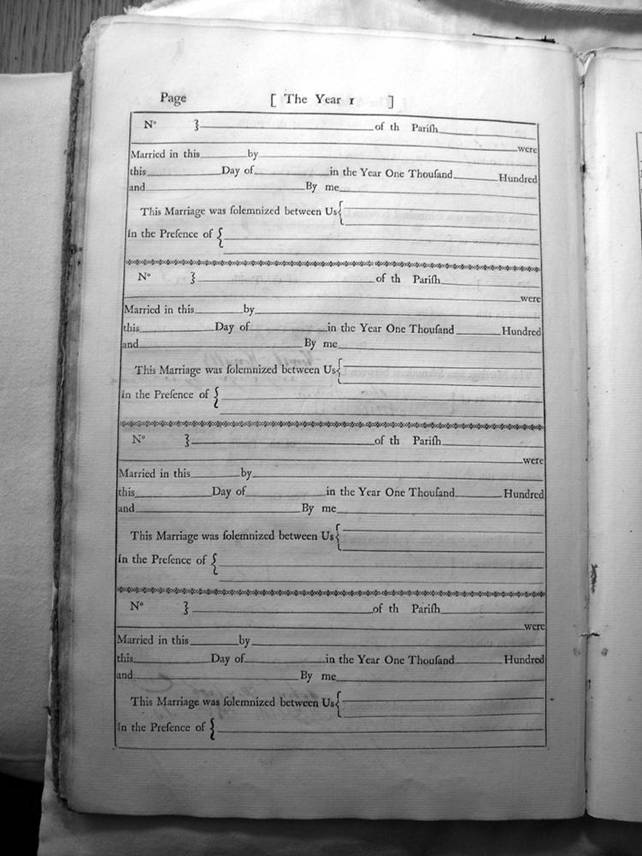 Page [ The Year 1 ]
Nº } of th Pariſh
were
Married in this by
this Day of in the Year One Thouſand Hundred
and By me
This Marriage was ſolemnized between Us {
in the Preſence of {
Nº } of th Pariſh
were
Married in this by
this Day of in the Year One Thouſand Hundred
and By me
This Marriage was ſolemnized between Us {
in the Preſence of {
Nº } of th Pariſh
were
Married in this by
this Day of in the Year One Thouſand Hundred
and By me
This Marriage was ſolemnized between Us {
in the Preſence of {
Nº } of th Pariſh
were
Married in this by
this Day of in the Year One Thouſand Hundred
and By me
This Marriage was ſolemnized between Us {
in the Preſence of {